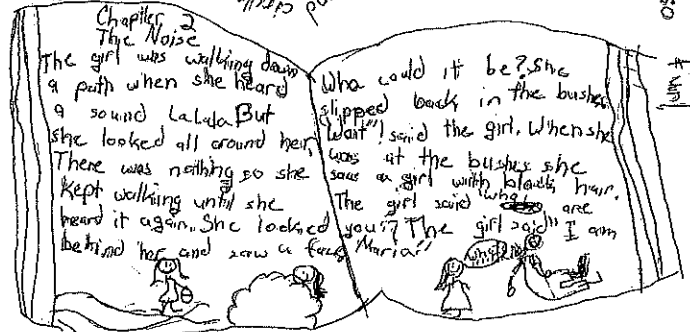 Chapter 2
The Noise
The girl was walking down
a path when she heard
a sound LaLaLa But
she looked all around her,
There was nothing so she
kept walking until she
heard it again. She looked
behind her and saw a face
Who could it be? She
slipped back in the bushes
"Wait"! said the girl. When she
was at the bushes she
saw a girl with black hair.
The girl said "who are
you"? The girl said" I am
"Maria"